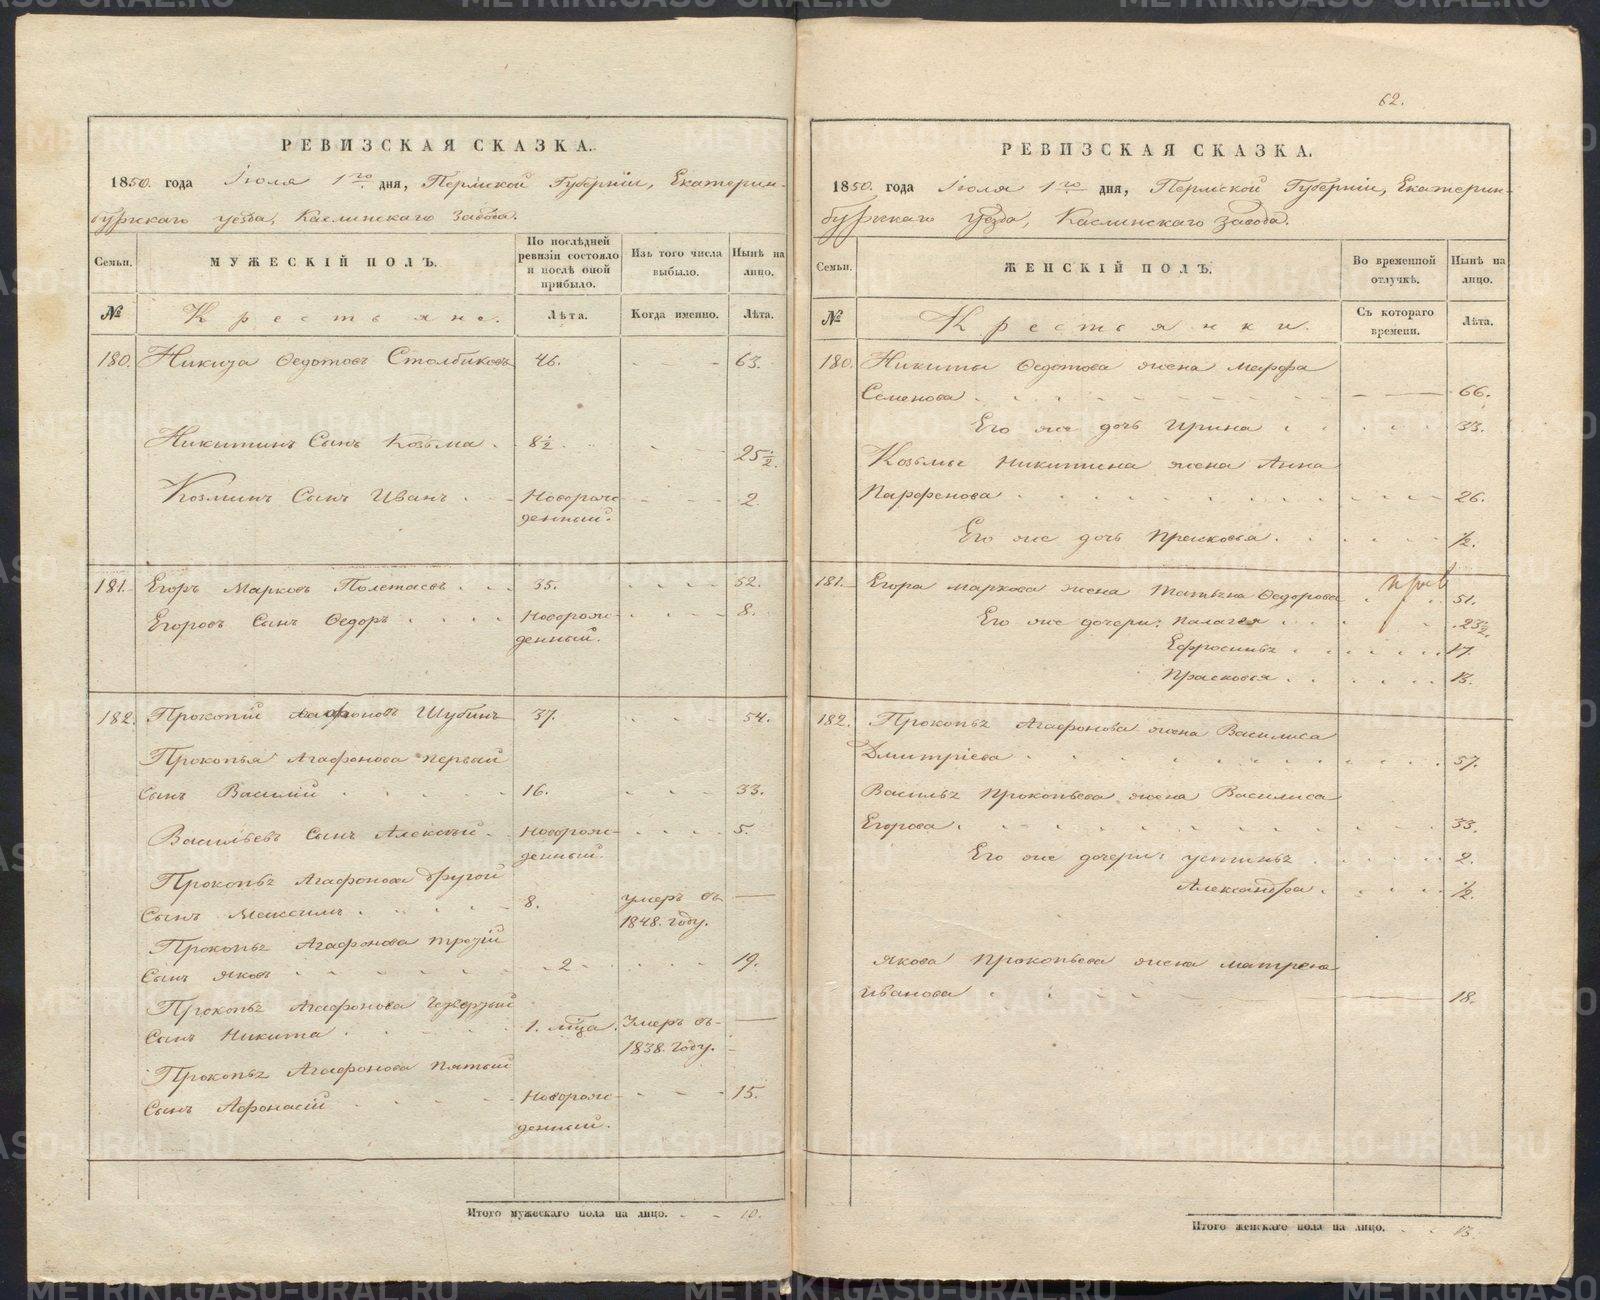 РЕВИЗСКАЯ СКАЗКА.
1850. года Іюля 1го дня, Пермской Губерніи, Екатерин-
бургскаго уѣзда, Каслинскаго завода.
Семьи. МУЖЕСКІЙ ПОЛЪ. По послѣдней ревизіи состояло и послѣ оной прибыло. Изъ того числа выбыло. Нынѣ на лицо.
№ Крестьяне. Лѣта. Когда именно. Лѣта.
180. Никита Ѳедотовъ Столбиковъ 46. 63.
Никитинъ Сынъ Козьма. 8½ 25½.
Козминъ Сынъ Иванъ. Новорож- 2
денный.
181. Егоръ Марковъ Полетаевъ 35. 52.
Егоровъ Сынъ Ѳедоръ. Новорож- 8.
денный.
182. Прокопій Агафоновъ Шубинъ 37. 54.
Прокопья Агафонова первый
сынъ Василий 16. 33.
Васильевъ сынъ Алексѣй. Новорож- 5.
денный.
Прокопья Агафонова другой
Сынъ Максимъ. 8. умеръ въ
1848. году.
Прокопья Агафонова третій
Сынъ Яковъ 2 19.
Прокопья Агафонова Четвертый
Сынъ Никита 1. мца. Умеръ въ
1838. году.
Прокопья Агафонова пятый
Сынъ Афонасій Новорож- 15.
денный.
Итого мужескаго пола на лицо. 10.
62.
РЕВИЗСКАЯ СКАЗКА.
1850. года Іюля 1го дня, Пермской Губерніи, Екатерин-
бургскаго Уѣзда, Каслинскаго завода.
Семьи. ЖЕНСКІЙ ПОЛЪ. Во временной отлучкѣ. Нынѣ на лицо.
№ Крестьянки. Съ котораго времени. Лѣта.
180. Никиты Ѳедотова жена Марфа
Семенова 66.
Его же дочь Ирина 33.
Козьмы Никитина жена Анна
Парфенова 26.
Его же дочь Прасковья. ½.
181. Егора Маркова жена Татьяна Ѳедорова 51.
Его же дочери: Палагея 23½.
Ефросинья 17.
Прасковья 13.
182. Прокопья Агафонова жена Василиса
Дмитріева 57.
Василья Прокопьева жена Василиса
Егорова. 33.
Его же дочери: Устинья 2.
Александра. ½.
Якова Прокопьева жена Матрена
Иванова 18.
Итого женскаго пола на лицо. 13.
METRIKI.GASO-URAL.RU